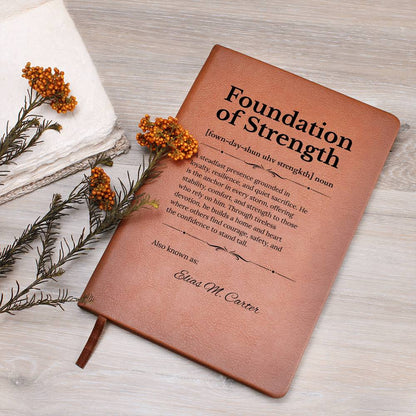 Foundation
of Strength
[fown-day-shun uhv strengkth] noun
A steadfast presence grounded in
loyalty, resilience, and quiet sacrifice. He
is the anchor in every storm, offering
stability, comfort, and strength to those
who rely on him. Through tireless
devotion, he builds a home and heart
where others find courage, safety, and
the confidence to stand tall.
Also known as:
Elias M. Carter